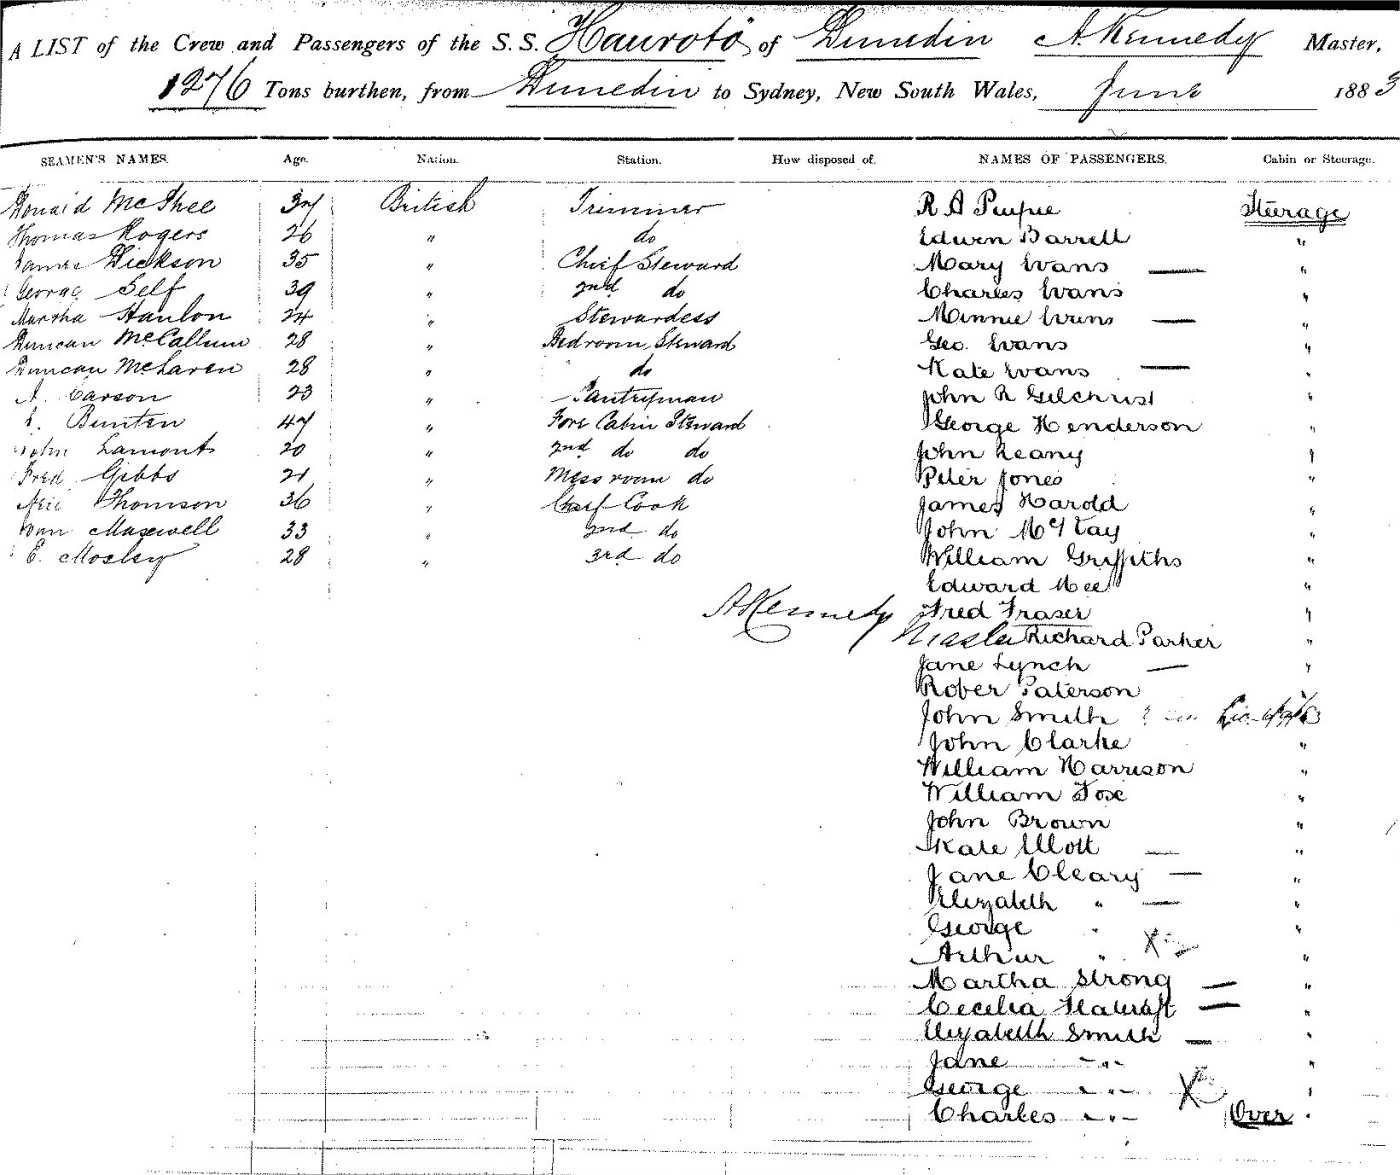 A LIST of the Crew and Passengers of the S.S. Hauroto of Dunedin A. Kennedy Master,
1276 Tons burthen, from Dunedin to Sydney, New South Wales, June 1883
SEAMEN'S NAMES. Age. Nation. Station. How disposed of. NAMES OF PASSENGERS. Cabin or Steerage.
Donald McPhee 37 British Trimmer R A Steerage
Thomas Rogers 26 " do Edwin Barrell "
James Dickson 35 " Chief Steward Mary Evans — "
George Self 39 " 2nd do Charles Evans "
Martha Hanlon 24 " Stewardess Minnie Evans — "
Duncan McCallum 28 " Bedroom Steward Geo. Evans "
Duncan McLaren 28 " do Kate Evans — "
A. Carson 23 " Pantryman John R Gilchrist "
Bunten 47 " Fore Cabin Steward George Henderson "
John Lamont 20 " 2nd do do John Keany "
Fred Gibbs 21 " Messroom do Peter Jones "
Neil Thomson 36 " Cook James Harold "
Maxwell 33 " 2nd do John "
E. Mosley 28 " 3rd do William Griffiths "
Edward Mee "
A Kennedy Fred Fraser "
Master Richard Parker "
Jane Lynch — "
Rober Paterson "
John Smith
John Clarke "
William Harrison "
William Fox "
John Brown "
Kate — "
Jane Cleary — "
Elizabeth " — "
George " "
Arthur " X "
Martha Strong — "
Cecilia — "
Elizabeth Smith — "
Jane - " - "
George - " - X "
Charles - " - Over "